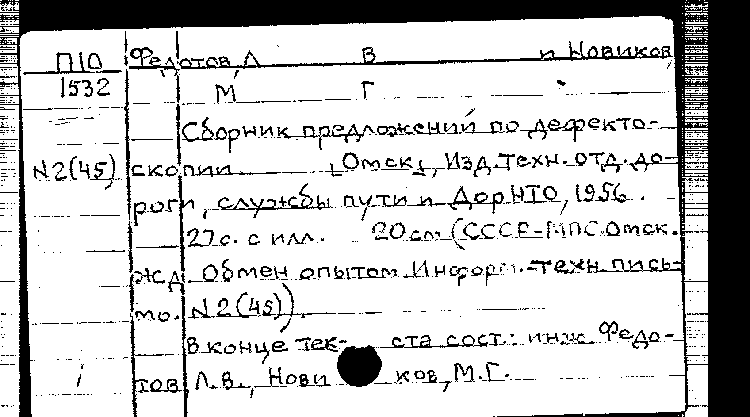 П10 Федотов, Л В и Новиков,
1532 М Г
Сборник предложений по дефекто-
N2(45) скопии [Омск], Изд. техн. отд. до-
роги, службы пути и ДорНТО, 1956.
27с. с илл. 20см (СССР-МПС. Омск.
жд. Обмен опытом. Информ.-техн. пись-
мо. N2(45)).
В конце тек- ста сост.: инж. Федо-
тов, Л.В., Нови ков, М.Г.